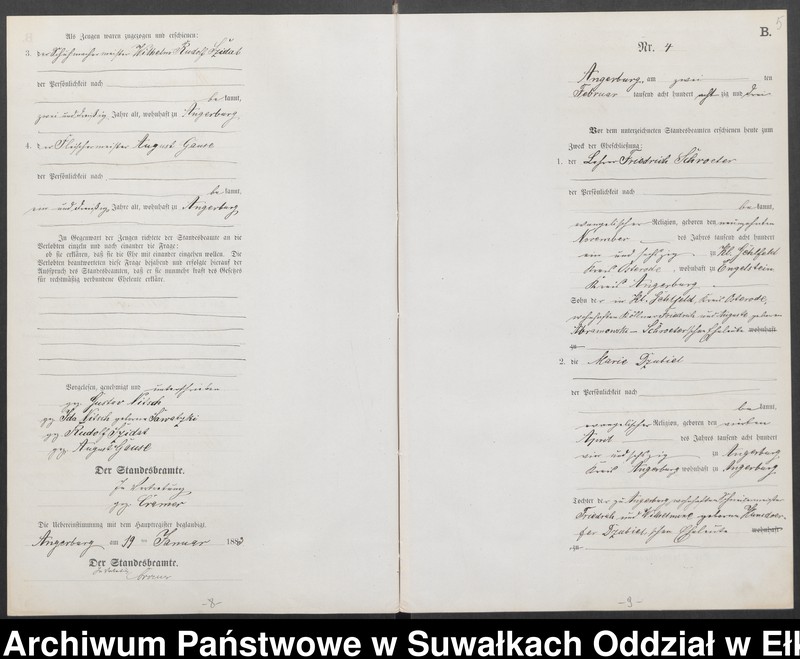 Als Zeugen waren zugezogen und erschienen:
3. der Schuhmachermeister Wilhelm Rudolf Szidat
der Persönlichkeit nach
bekannt,
zwei und dreißig Jahre alt, wohnhaft zu Angerburg,
4. der Fleischermeister August Gause
der Persönlichkeit nach
bekannt,
ein und dreißig Jahre alt, wohnhaft zu Angerburg
In Gegenwart der Zeugen richtete der Standesbeamte an die
Verlobten einzeln und nach einander die Frage:
ob sie erklären, daß sie die Ehe mit einander eingehen wollen. Die
Verlobten beantworteten diese Frage bejahend und erfolgte hierauf der
Ausspruch des Standesbeamten, daß er sie nunmehr kraft des Gesetzes
für rechtmäßig verbundene Eheleute erkläre.
Vorgelesen, genehmigt und unterschrieben
gez. Gustav Nitsch
gez. Ida Nitsch geborene Sawatzki
gez. Rudolf Szidat
gez. August Gause
Der Standesbeamte.
In Vertretung
gez. Cremer
Die Uebereinstimmung mit dem Hauptregister beglaubigt.
Angerburg am 19 ten Januar 1883
Der Standesbeamte.
In Vertretung
Cremer
-8-
B.
5
Nr. 4
Angerburg, am zwei ten
Februar tausend acht hundert acht zig und drei
Vor dem unterzeichneten Standesbeamten erschienen heute zum
Zweck der Eheschließung:
1. der Lehrer Friedrich Schroeter
der Persönlichkeit nach
bekannt,
evangelischer Religion, geboren den neunzehnten
November des Jahres tausend acht hundert
ein und sechszig zu Kl. Gehlfeld
Kreis Osterode, wohnhaft zu Engelstein
Kreis Angerburg
Sohn der in Kl. Gehlfeld, Kreis Osterode,
wohnhaften Friedrich und Auguste geborene
Abramowski - Schroeterschen Eheleute wohnhaft
zu
2. die Marie Dzubiel
der Persönlichkeit nach
bekannt,
evangelischer Religion, geboren den vierten
April des Jahres tausend acht hundert
vier und sechszig zu Angerburg
Kreis Angerburg wohnhaft zu Angerburg
Tochter der zu Angerburg wohnhaften
Friedrich und Wilhelmine geborene
Dzubielschen Eheleute wohnhaft
zu
-9-
Archiwum Państwowe w Suwałkach Oddział w Ełk